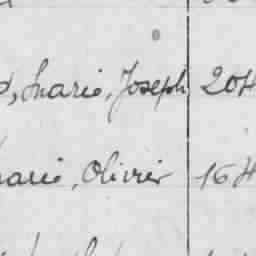 , Marie, Joseph 204
Marie, Olivier 164